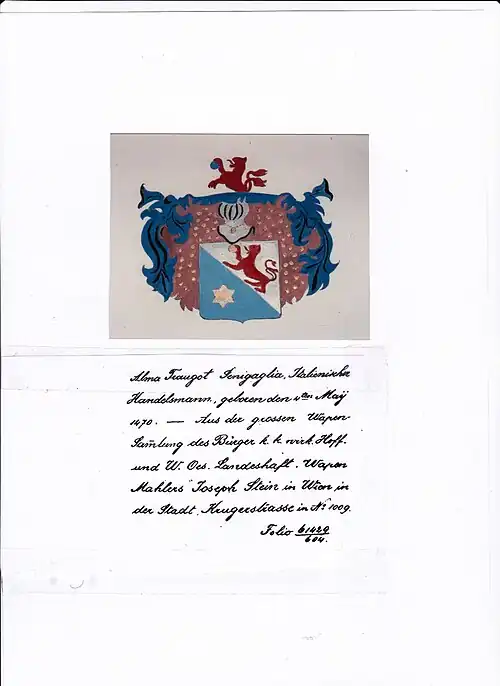 Alma Traugot Senigaglia, Italienischer
Handelsmann, geboren den 4ten Maÿ
1470. — Aus der grossen Wapen
Sam̄lung des Bürger k. k. wirk. Hoff.
und W. Oes. Landeshaft. Wapen
Mahlers Joseph Stein in Wien in
der Stadt. Krugerstrasse in No 1009.
Folio 61429
604.